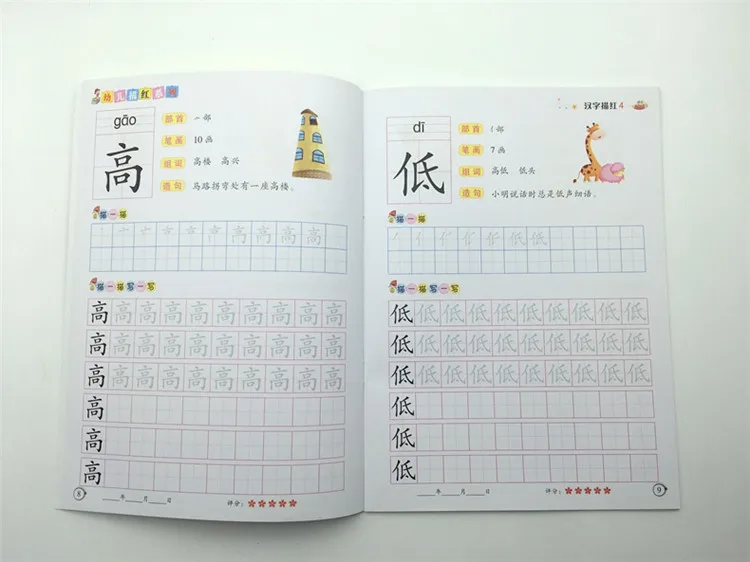 幼儿描红系列
gāo
高
部首 亠部
笔画 10画
组词 高楼 高兴
造句 马路拐弯处有一座高楼。
描一描
高 高 高
描一描写一写
高 高 高 高 高 高 高 高 高 高
高 高 高 高 高 高 高 高 高 高
高 高 高 高 高 高 高 高 高 高
高
高
高
8
____年____月____日
评分:
汉字描红 4
dī
低
部首 亻部
笔画 7画
组词 高低 低头
造句 小明说话时总是低声细语。
描一描
低 低
描一描写一写
低 低 低 低 低 低 低 低 低 低
低 低 低 低 低 低 低 低 低 低
低 低 低 低 低 低 低 低 低 低
低
低
低
____年____月____日
评分:
9